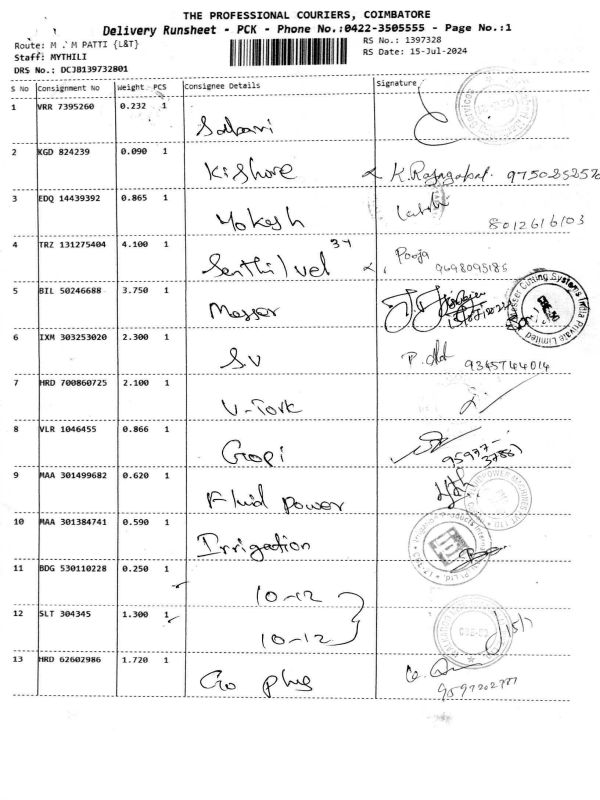 THE PROFESSIONAL COURIERS, COIMBATORE
Delivery Runsheet - PCK - Phone No.:0422-3505555 - Page No.:1
Route: M M PATTI {L&T}
RS No.: 1397328
Staff: MYTHILI
RS Date: 15-Jul-2024
DRS No.: DCJB139732801
S No Consignment No Weight PCS Consignee Details Signature
1 VRR 7395260 0.232 1 Sabari
2 KGD 824239 0.090 1 Kishore K. Rajagopal. 9750252520
3 EDQ 14439392 0.865 1 Mokesh
8012616103
4 TRZ 131275404 4.100 1 Senthil vel 34 Pooja
9698095186
5 BIL 50246688 3.750 1 Messer
Messer Cutting Systems India Private Limited
6 IXM 303253020 2.300 1 SV 9345744014
7 HRD 700860725 2.100 1 V-Tork
8 VLR 1046455 0.866 1 Gopi
9 MAA 301499682 0.620 1 Fluid power
10 MAA 301384741 0.590 1 Irrigation
11 BDG 530110228 0.250 1 10-12
12 SLT 304345 1.300 1 10-12 15/7
13 HRD 62602986 1.720 1 Go plus